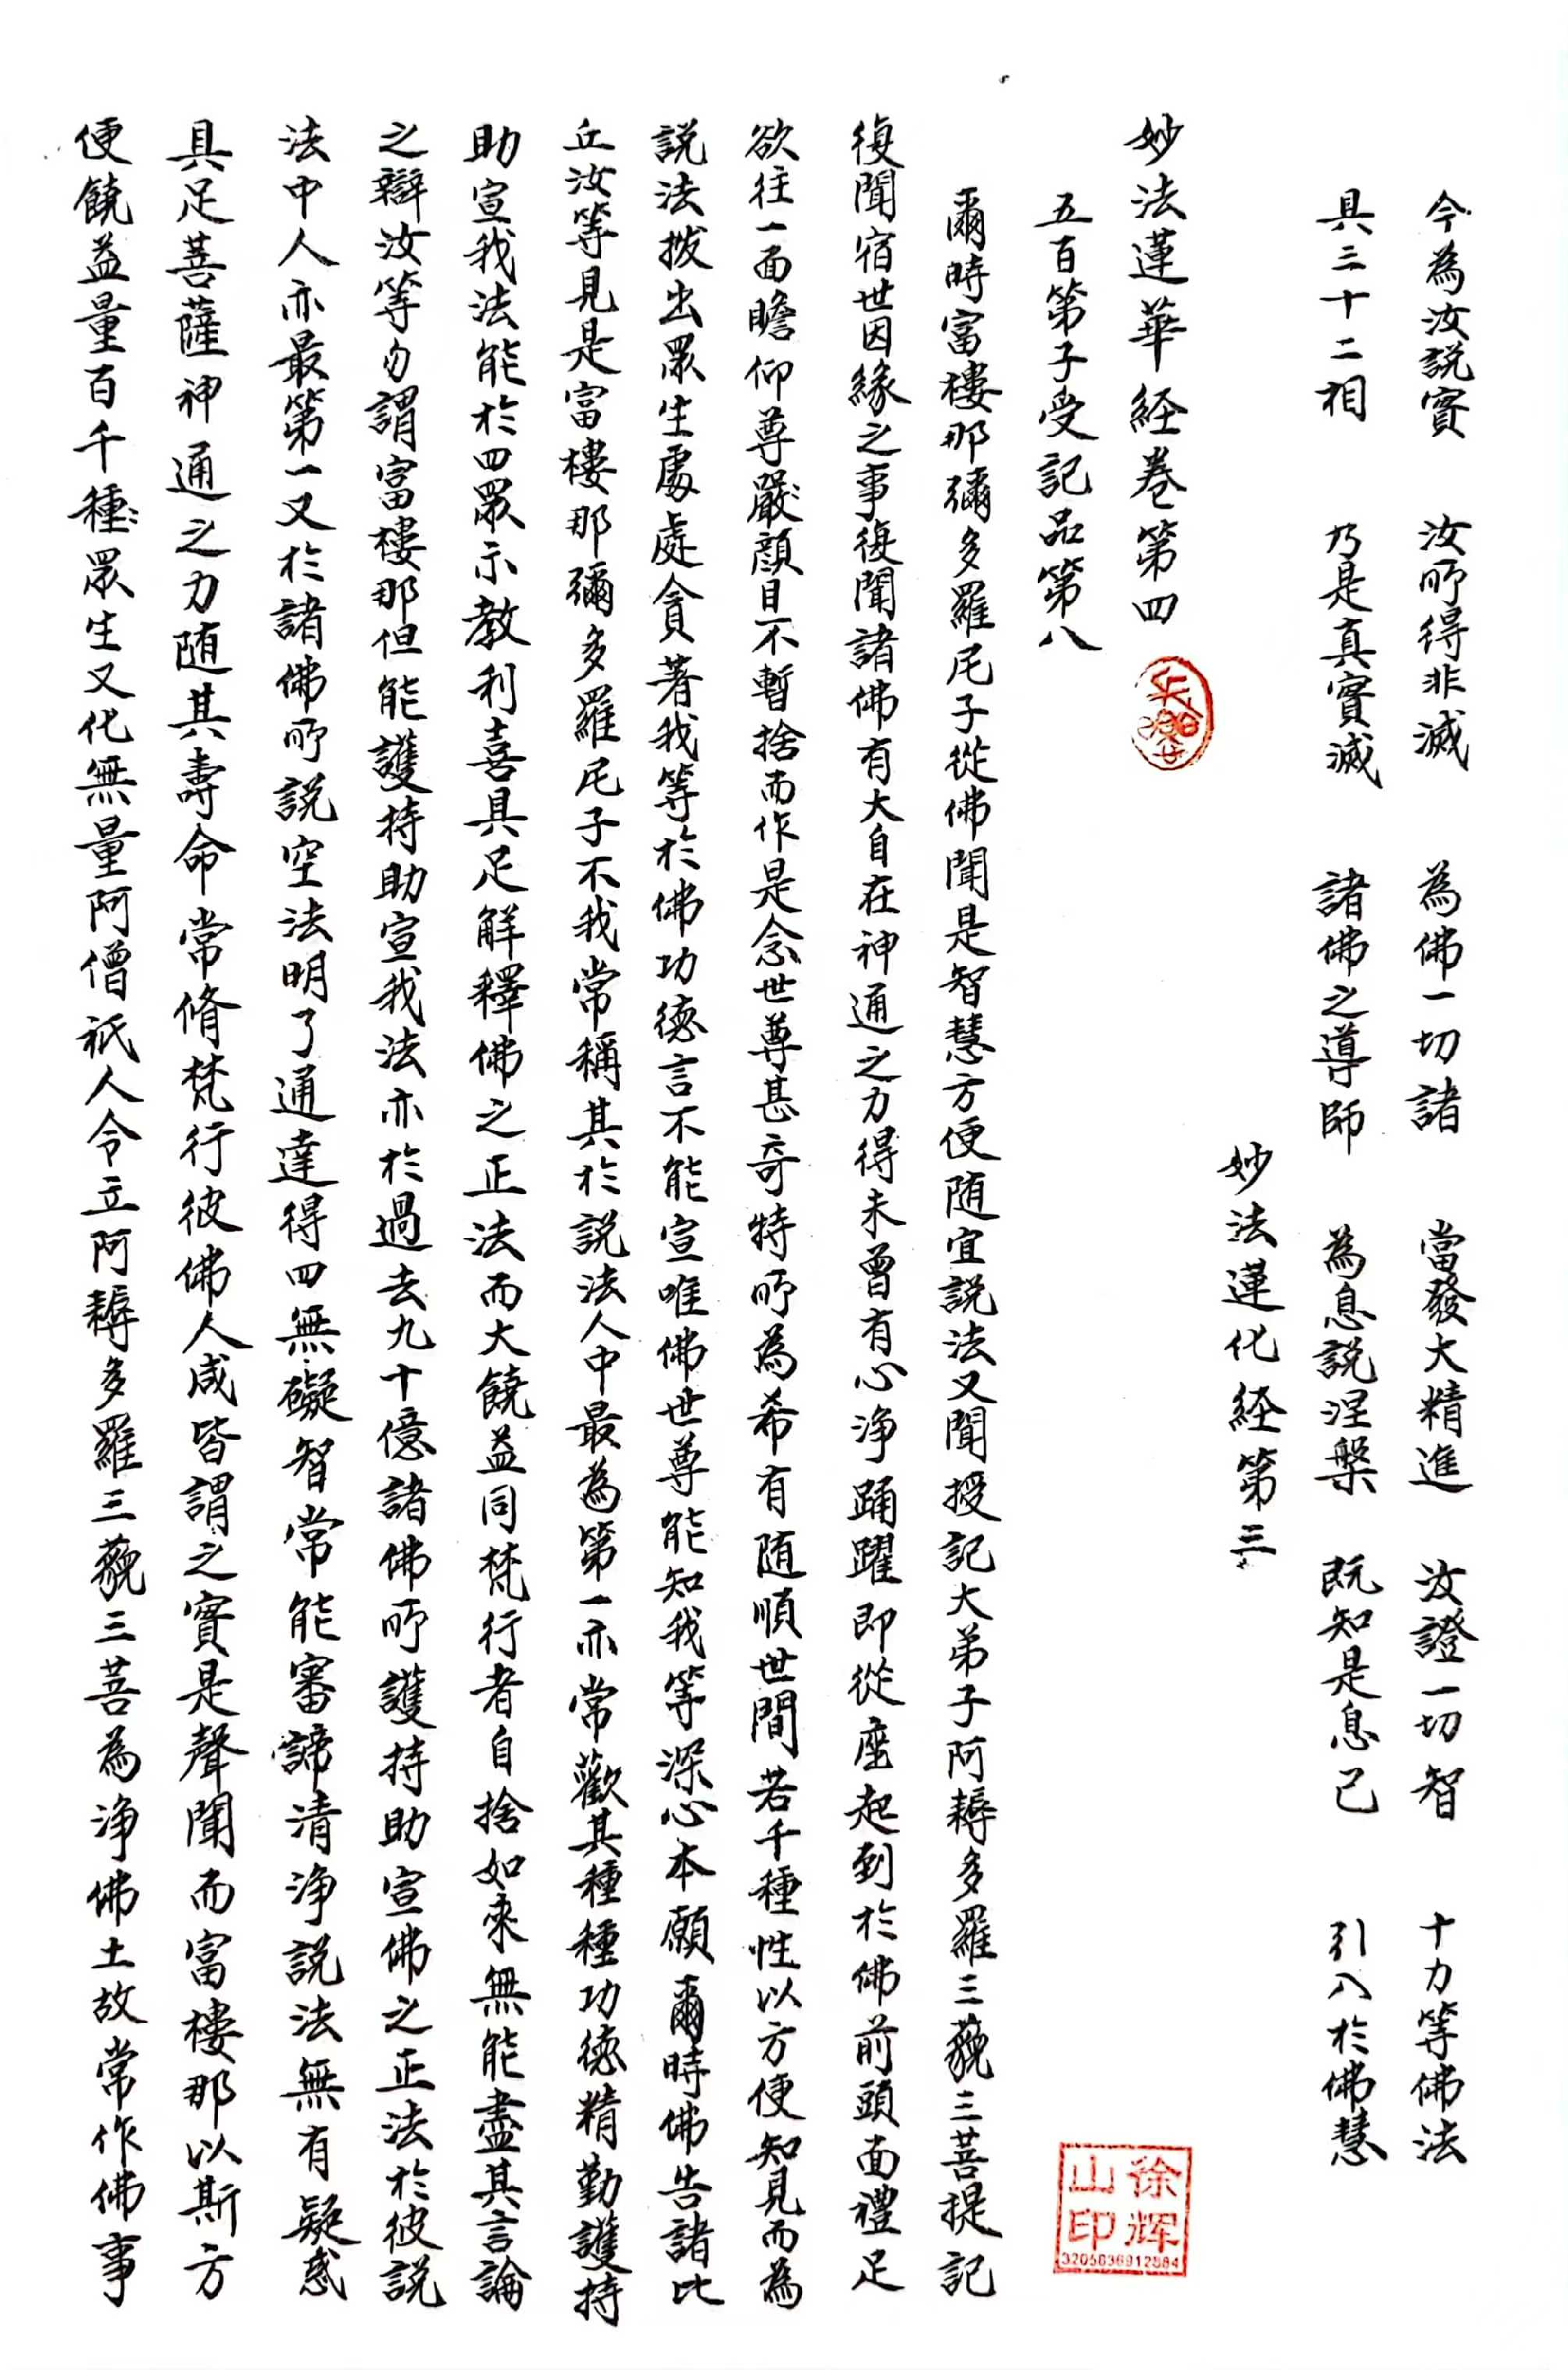 今為汝説實　汝所得非滅　為佛一切諸　當發大精進　汝證一切智　十力等佛法
具三十二相　乃是真實滅　諸佛之導師　為息説涅槃　既知是息已　引入於佛慧
妙法蓮化経第三
妙法蓮華経卷第四
五百第子受記品第八
爾時富樓那彌多羅尼子從佛聞是智慧方便随宜説法又聞授記大弟子阿耨多羅三藐三菩提記
復聞宿世因緣之事復聞諸佛有大自在神通之力得未曾有心浄踊躍即從座起到於佛前頭面禮足
欲往一面瞻仰尊嚴顔目不暫捨而作是念世尊甚奇特所為希有随順世間若千種性以方便知見而為
説法拔出眾生處處貪著我等於佛功德言不能宣唯佛世尊能知我等深心本願爾時佛告諸比
丘汝等見是富樓那彌多羅尼子不我常稱其於説法人中最為第一亦常歡其種種功德精勤護持
助宣我法能於四眾示教利喜具足解釋佛之正法而大饒益同梵行者自捨如來無能盡其言論
之辯汝等勿謂富樓那但能護持助宣我法亦於過去九十億諸佛所護持助宣佛之正法於彼説
法中人亦最第一又於諸佛所説空法明了通達得四無礙智常能審諦清浄説法無有疑惑
具足菩薩神通之力随其壽命常脩梵行彼佛人咸皆謂之實是聲聞而富樓那以斯方
便饒益量百千種々眾生又化無量阿僧祇人令立阿耨多羅三藐三菩為浄佛土故常作佛事
徐辉山印
3205036912884